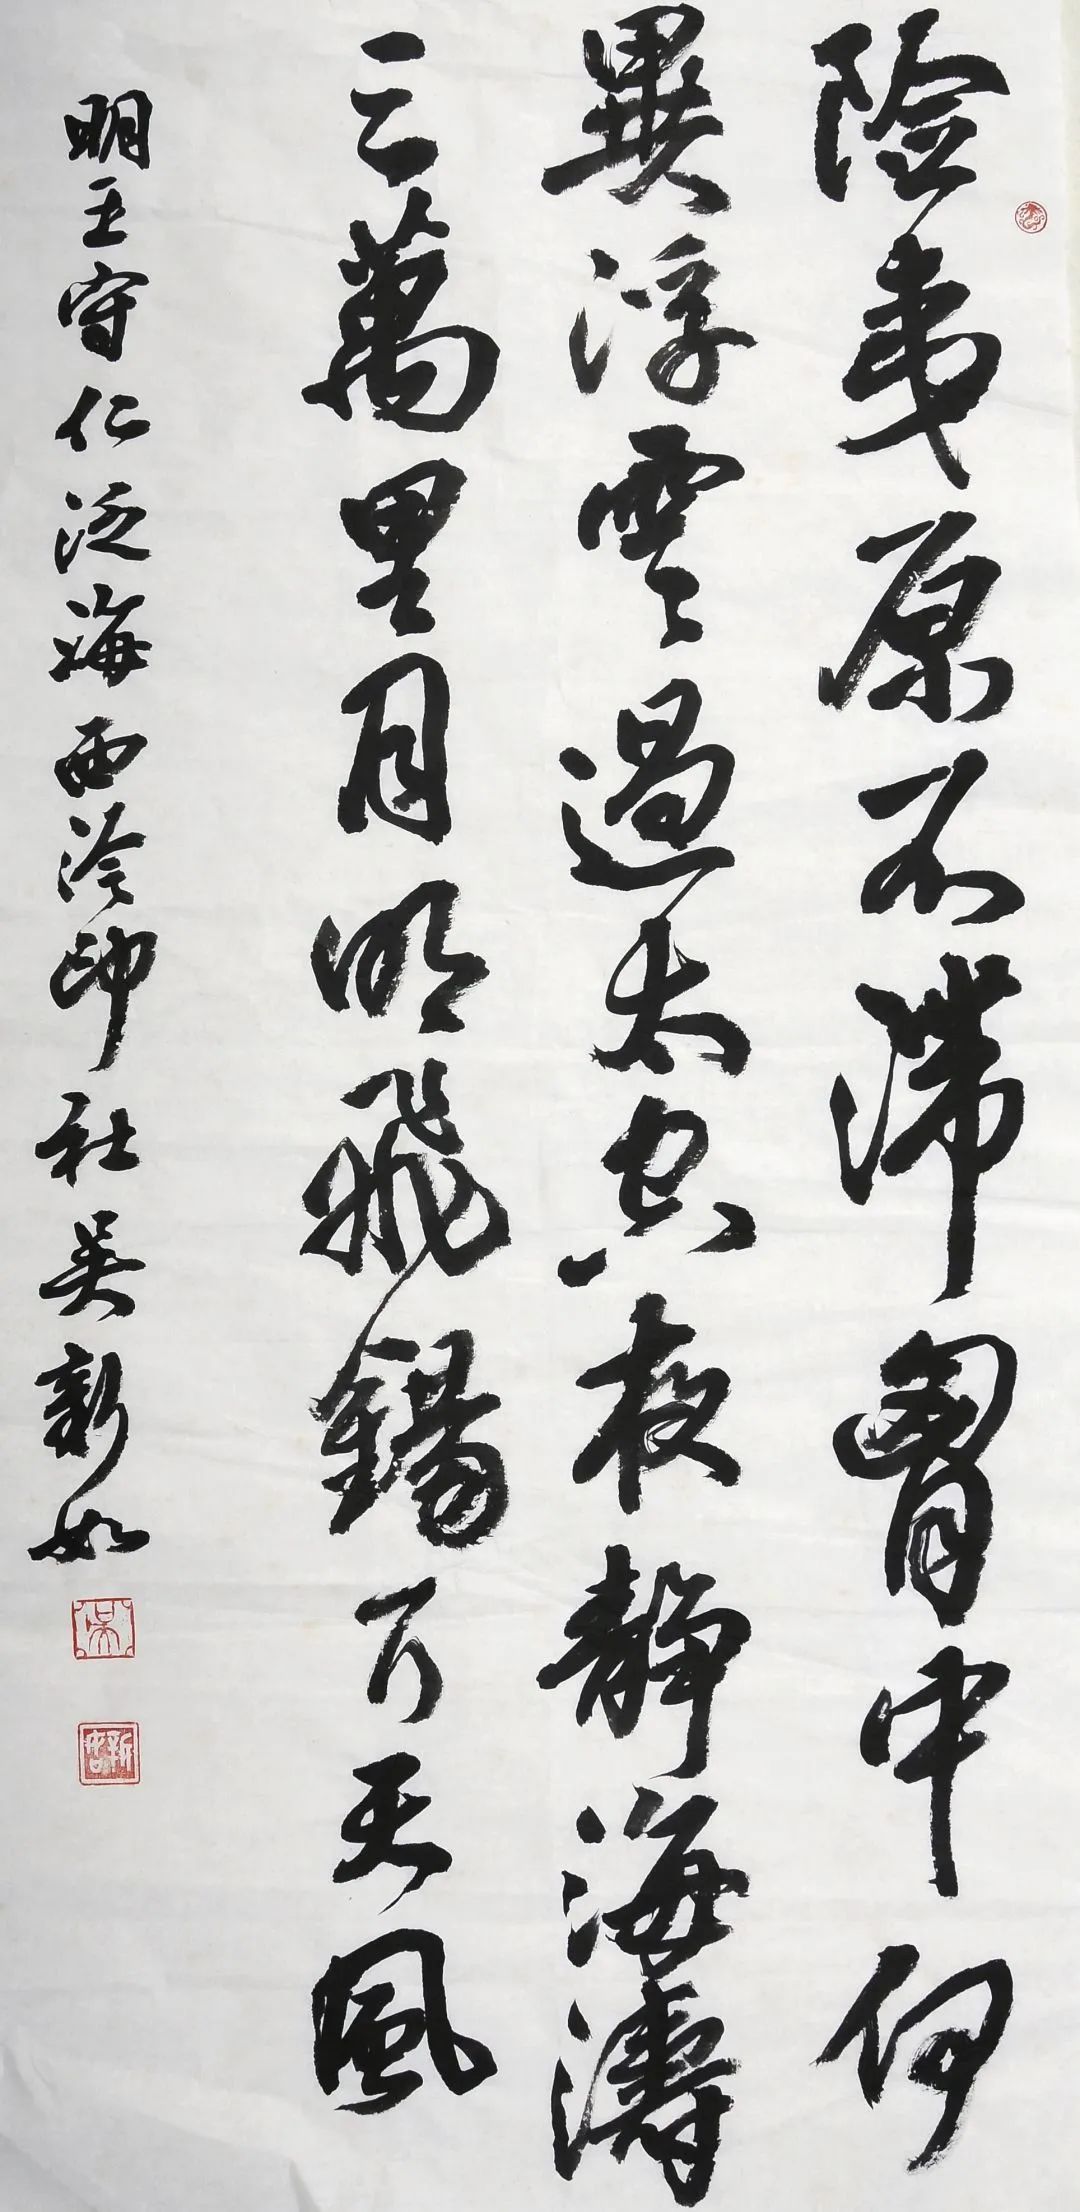 險夷原不滯胷中何
異浮雲過太空夜靜海濤
三萬里月明飛錫下天風
明王守仁泛海西泠印社吳新如
吳
新如